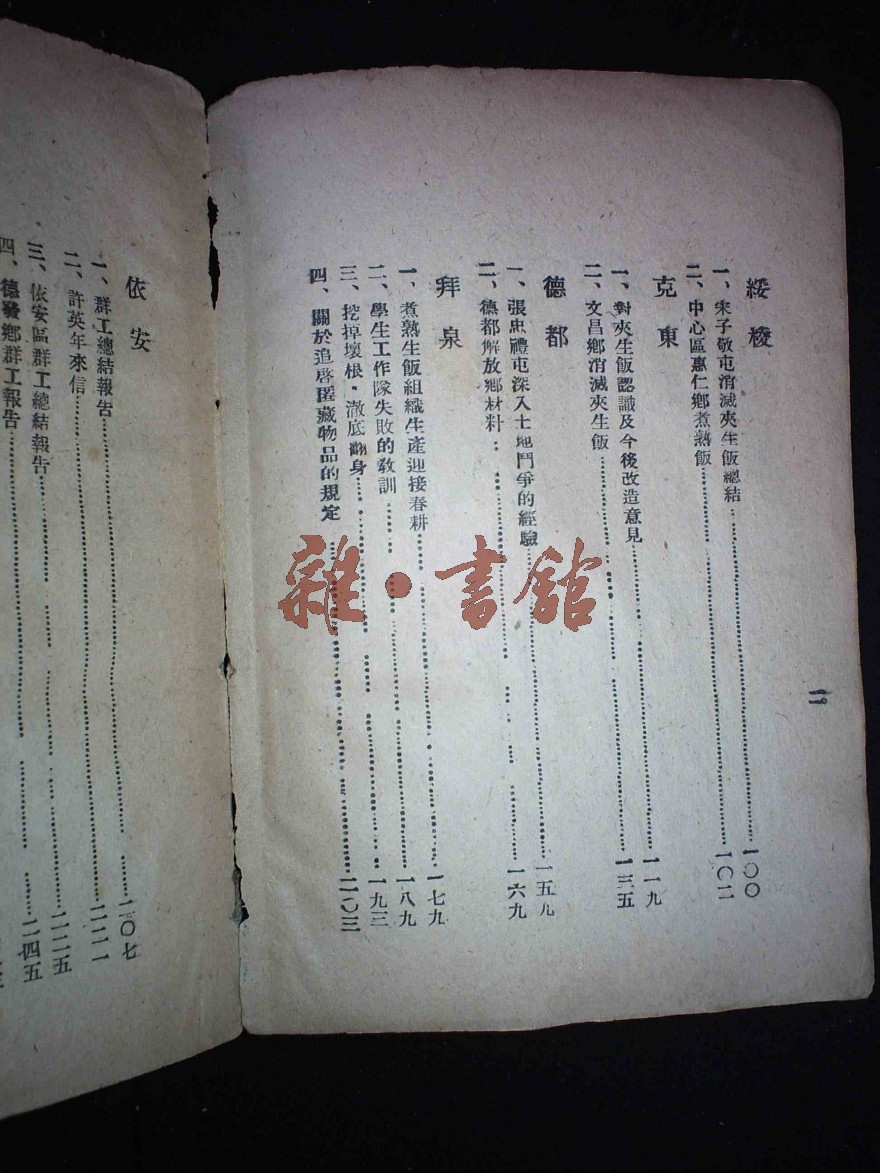 二
綏稜
一、宋子敬屯消滅夾生飯總結……一〇〇
二、中心區惠仁鄉煮熟飯……一〇二
克東
一、對夾生飯認識及今後改造意見……一一九
二、文昌鄉消滅夾生飯……一三五
德都
一、張忠禮屯深入土地鬥爭的經驗……一五九
二、德都解放鄉材料……一六九
拜泉
一、煮熟生飯組織生產迎接春耕……一七九
二、學生工作隊失敗的教訓……一八九
三、挖掉壞根・澈底翻身……一九三
四、關於追啓匿藏物品的規定……二〇三
依安
……二〇七
一、群工總結報告……二二一
二、許英年來信……二二五
三、依安區群工總結報告……二四五
四、德發鄉群工報告
雜・書館